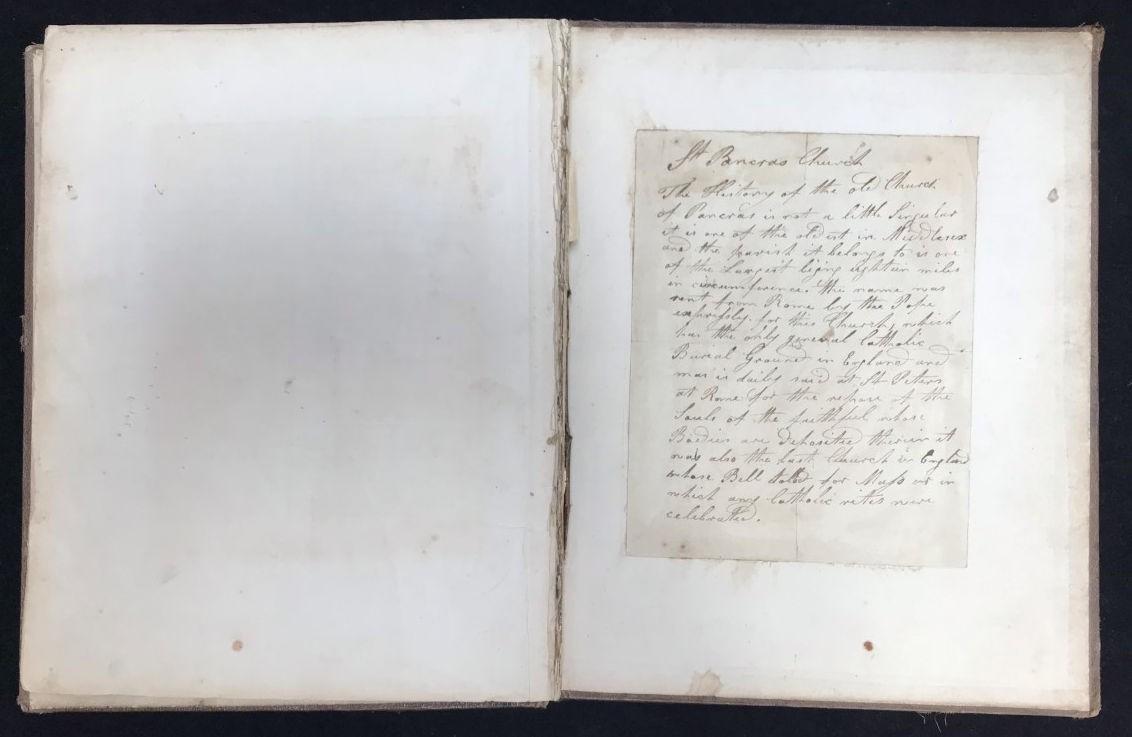 St Pancras Church
The History of the old Church
of Pancras is not a little Singular
it is one of the oldest in Middlesex
and the parish it belongs to is one
of the Largest lijng eighteen miles
in circumference. the name was
sent from Rome by the Pope
expressly for this Church, which
has the only general Catholic
Burial Ground in England and
mas is daily said at St Peters
at Rome for the repose of the
Souls of the faithful whose
Bodies are deposited therein it
was also the last Church in England
whose Bell toled for Mass or in
which any Catholic rites were
celebrated.